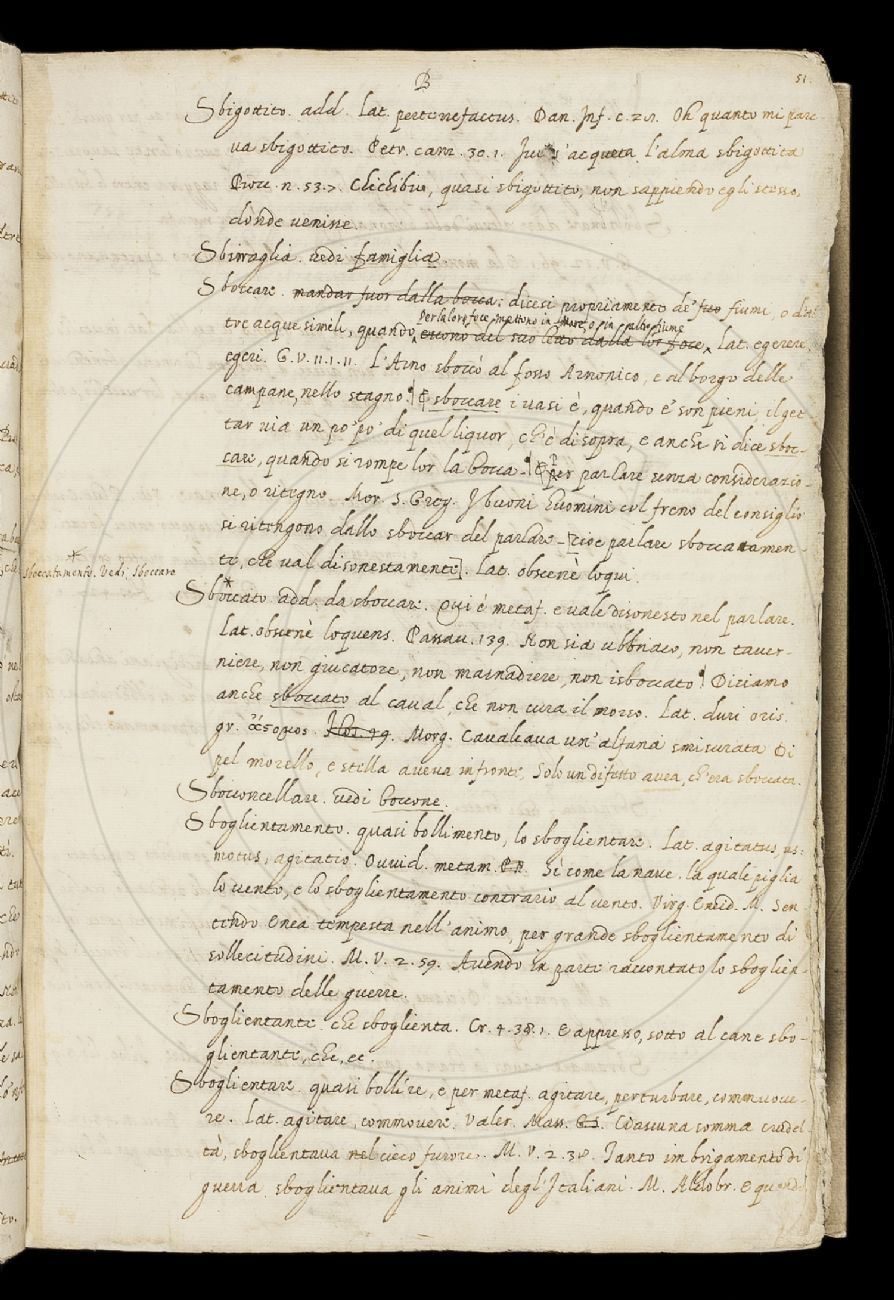 B
51.
Sbigottito. add. Lat. perterrefactus. Dan. Inf. c. 25. Oh quanto mi pare-
va sbigottito. Petr. canz. 30. 1. s'acqueta l'alma sbigottita
Bocc. n. 53. 7. Chichibio, quasi sbigottito, non sappiendo egli stesso,
donde venisse.
Sbirraglia. vedi famiglia.
Sboccare. mandar fuor dalla bocca: dicesi propriamente de' fiumi, o d'al-
per la loro foce mettono in mare, o in altro fiume
tre acque simili, quando escono del suo letto dalla lor foce, Lat. egerere,
egeri. G. V. 11. 1. 11. L'Arno sboccò al fosso Arnonico, e al borgo delle
campane, nello stagno. E sboccare i vasi è, quando e' son pieni, il get-
tar via un po' po' di quel liquor, ch'è di sopra, e anche si dice sboc-
care, quando si rompe lor la bocca. E per parlare senza considerazio-
ne, o ritegno. Mor. S. Greg. I buoni huomini col freno del consiglio
si ritengono dallo sboccar del parlare [cioè parlare sboccatamen-
te, che val disonestamente]. Lat. obscenè loqui.
Sboccatamento. Vedi Sboccare
Sboccato. add. da sboccare. Qui è metaf. e vale disonesto nel parlare.
Lat. obscenè loquens. Passav. 139. Non sia ubbriaco, non taver-
niere, non giucatore, non masnadiere, non isboccato. Diciamo
anche sboccato al caval, che non cura il morso. Lat. duri oris.
gr. ἄστομος. Morg. Cavalcava un'alfana smisurata Di
pel morello, e stella aveva in fronte, Solo un difetto avea, ch'era sboccata.
Sbocconcellare. vedi boccone.
Sboglientamento. quasi bollimento, lo sboglientare. Lat. agitatus, us:
motus, agitatio. Ovvid. metam. Sì come la nave, la quale piglia
lo vento, e lo sboglientamento contrario al vento. Virg. Eneid. M. Sen-
tendo Enea tempesta nell'animo, per grande sboglientamento di
sollecitudini. M. V. 2. 59. Avendo in parte raccontato lo sboglien-
tamento delle guerre.
Sboglientante. che sboglienta. Cr. 4. 38. 1. E appresso, sotto al cane sbo-
glientante, che, ec.
Sboglientare. quasi bollire, e per metaf. agitare, perturbare, commuove-
re. Lat. agitare, commovere. Valer. Mass. Ciascuna somma crudel-
tà, sboglientava nel cieco furore. M. V. 2. 38. Tanto imbrigamento di
guerra sboglientava gli animi degl'Italiani. M. Aldobr. E quando